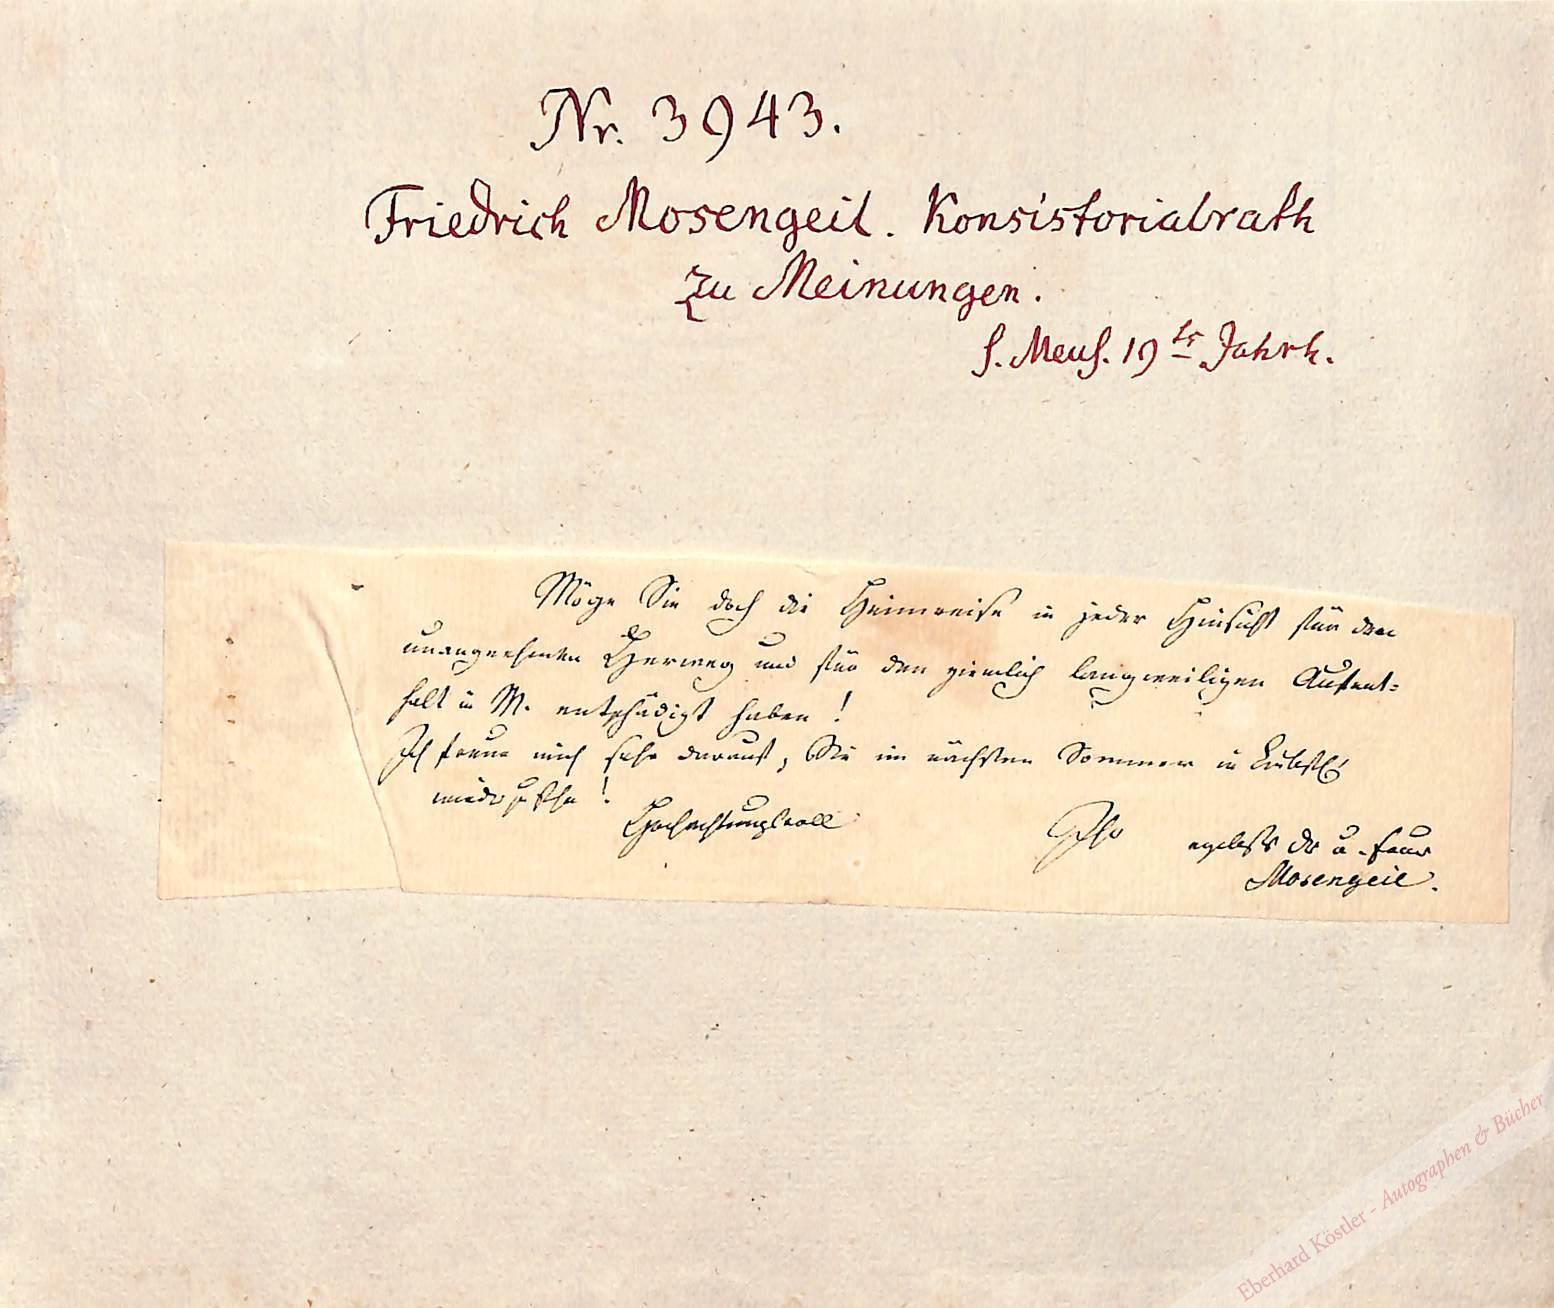 Nr. 3943.
Friedrich Mosengeil. Konsistorialrath
zu Meinungen.
s. Meus. 19tes Jahrh.
Möge Sie doch die Heimreise in jeder Hinsicht für den
unangenehmen Herweg und für den ziemlich langweiligen Aufent=
halt in M. entschädigt haben!
Ich freue mich sehr darauf, Sie im nächsten Sommer in
wiederzusehn!
Hochachtungsvoll
Ihr ergebster Dr u. Freund
Mosengeil.
Eberhard Köstler - Autographen & Bücher